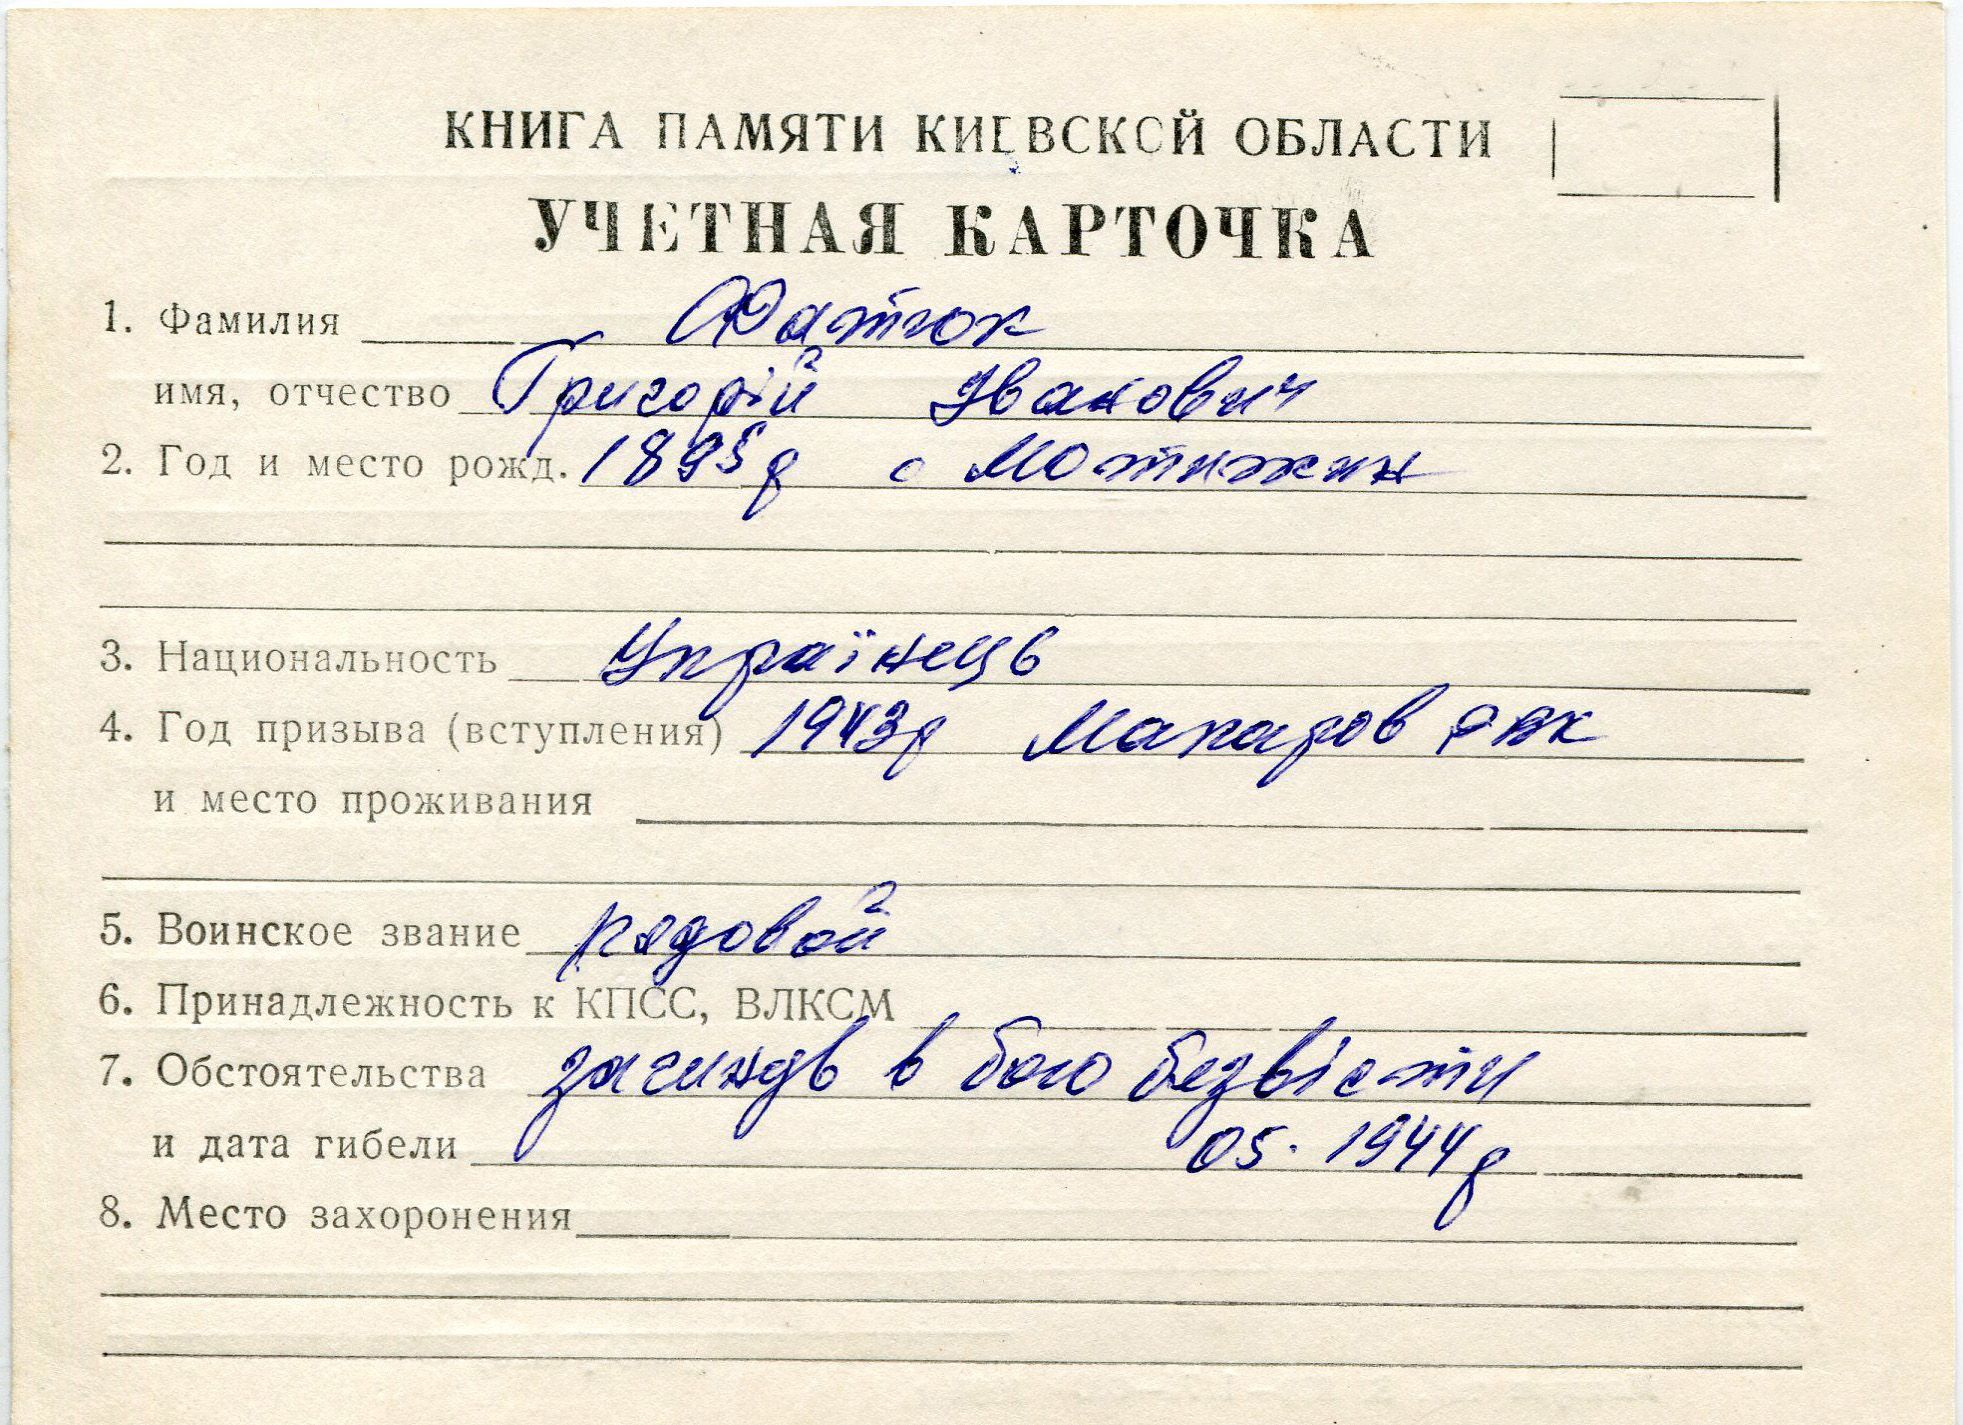 КНИГА ПАМЯТИ КИЕВСКОЙ ОБЛАСТИ
УЧЕТНАЯ КАРТОЧКА
1. Фамилия Фатюк
имя, отчество Григорій Іванович
2. Год и место рожд. 1895р с Мотижин
3. Национальность Українець
4. Год призыва (вступления) 1943р Макаров РВК
и место проживания
5. Воинское звание рядовой
6. Принадлежность к КПСС, ВЛКСМ
7. Обстоятельства загинув в бою безвісти
и дата гибели 05. 1944р
8. Место захоронения